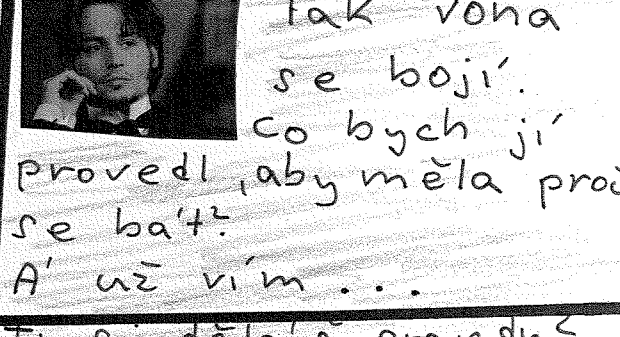 Tak vona
se bojí.
Co bych jí
provedl, aby měla
se bát?
A' už vím...